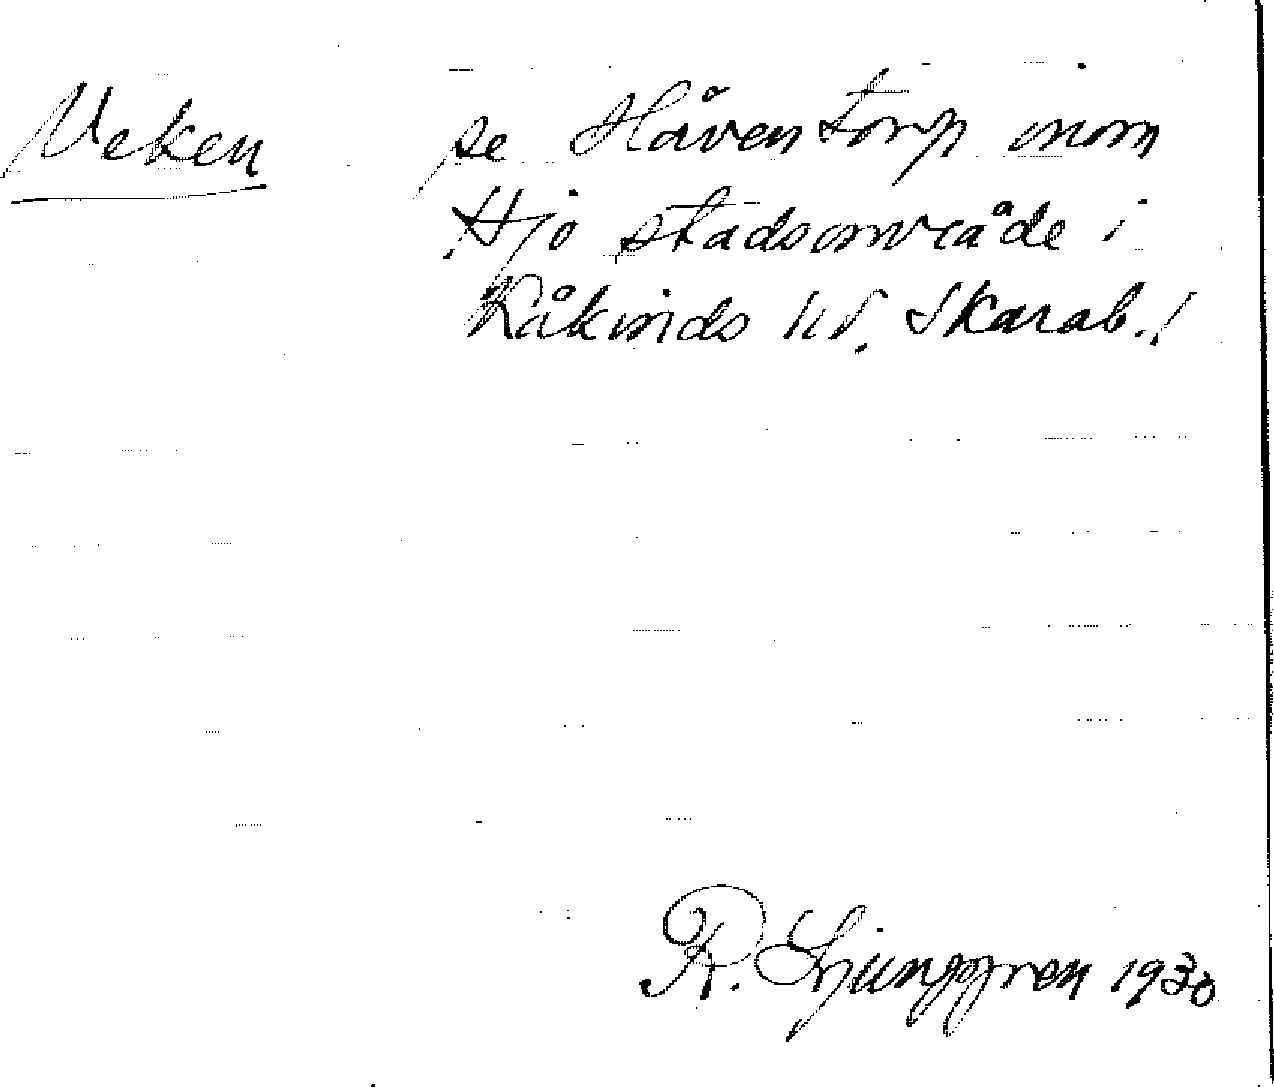 Veken se Håventorp inom
Hjo stadsområde i
Kåkinds hd, Skarab. l
R. Ljunggren 1930